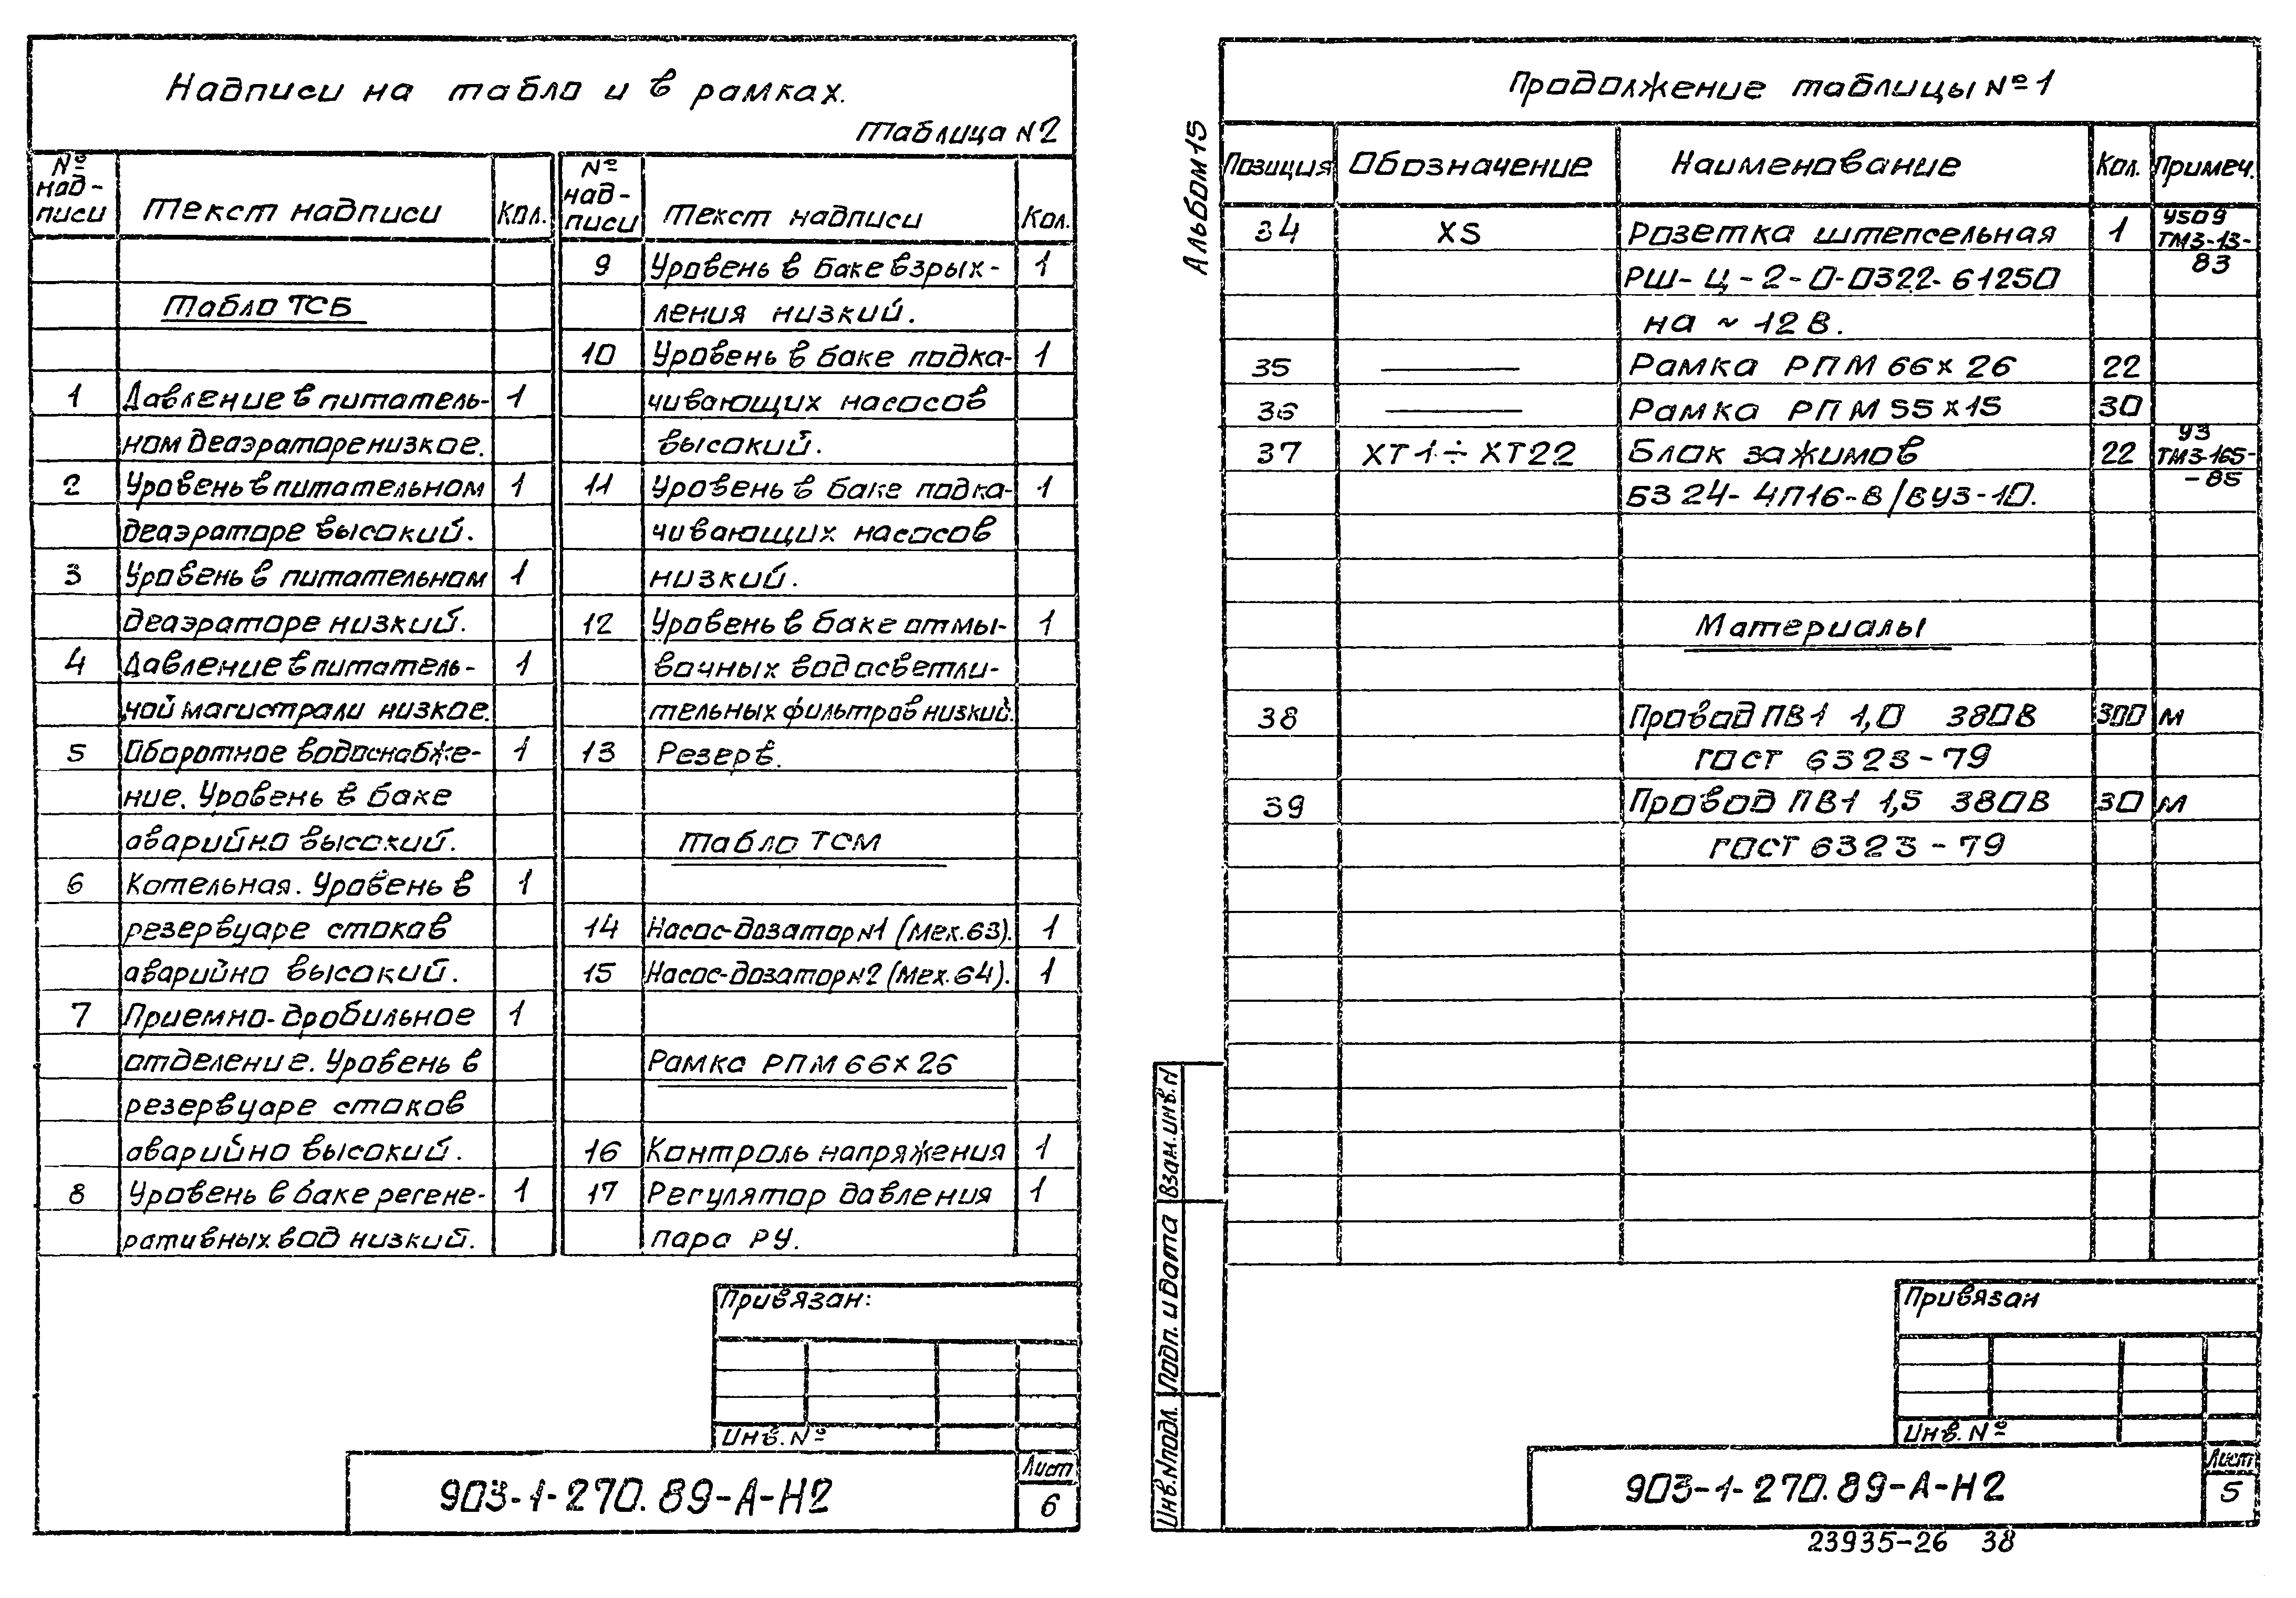 Надписи на табло и в рамках.
Таблица N2
№ надписи Текст надписи Кол.
Табло ТСБ
1 Давление в питатель- 1
ном деаэраторе низкое.
2 Уровень в питательном 1
деаэраторе высокий.
3 Уровень в питательном 1
деаэраторе низкий.
4 Давление в питатель- 1
ной магистрали низкое.
5 Оборотное водоснабже- 1
ние. Уровень в баке
аварийно высокий.
6 Котельная. Уровень в 1
резервуаре стоков
аварийно высокий.
7 Приемно-дробильное 1
отделение. Уровень в
резервуаре стоков
аварийно высокий.
8 Уровень в баке регене- 1
ративных вод низкий.
№ над-писи Текст надписи Кол.
9 Уровень в баке взрых- 1
ления низкий.
10 Уровень в баке подка- 1
чивающих насосов
высокий.
11 Уровень в баке подка- 1
чивающих насосов
низкий.
12 Уровень в баке отмы- 1
вочных вод осветли-
тельных фильтров низкий.
13 Резерв.
Табло ТСМ
14 Насос-дозатор N1 (мех.63). 1
15 Насос-дозатор N2 (мех.64). 1
Рамка РПМ 66×26
16 Контроль напряжения 1
17 Регулятор давления 1
пара РУ.
Привязан:
Инв. №
903-1-270.89-А-Н2
Лист
6
Альбом 15
Продолжение таблицы №1
Позиция Обозначение Наименование Кол. Примеч.
34 XS Розетка штепсельная 1 У509
ТМ3-13-
83
РШ-Ц-2-0-0322-61250
на ~ 12 В.
35 Рамка РПМ 66×26 22
36 Рамка РПМ 55×15 30
37 XT1÷XT22 Блок зажимов 22 У3
ТМ3-165-
-85
БЗ 24-4П16-В/ВУ3-10.
Материалы
38 Провод ПВ1 1,0 380В 300 м
ГОСТ 6323-79
39 Провод ПВ1 1,5 380В 30 м
ГОСТ 6323-79
Взам.инв.N
Подп. и дата
Инв.Nподл.
Привязан
Инв. №
903-1-270.89-А-Н2
Лист
5
23935-26 38